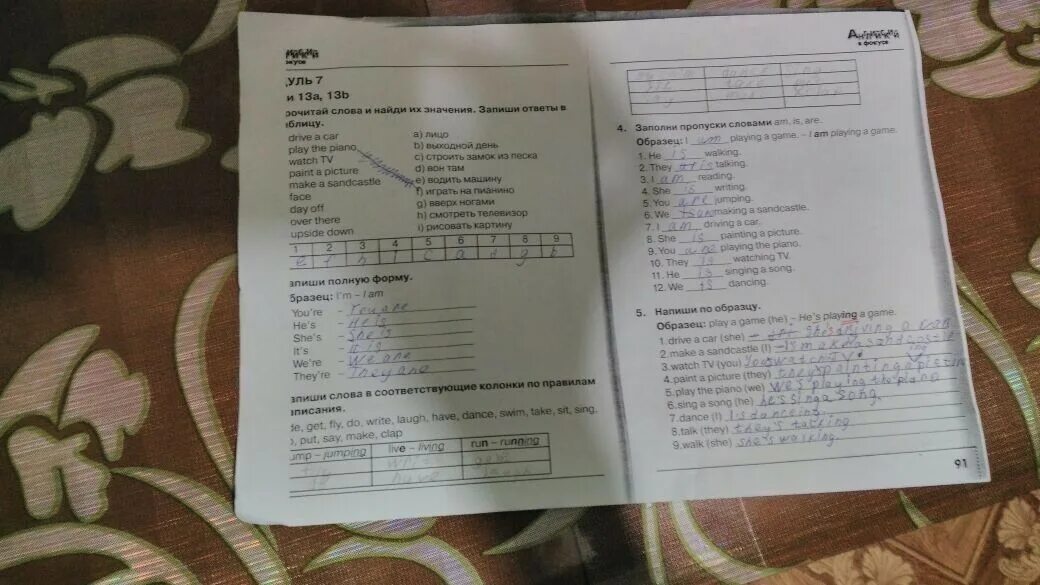 УЛЬ 7
и 13a, 13b
рочитай слова и найди их значения. Запиши ответы в
аблицу.
drive a car a) лицо
play the piano b) выходной день
watch TV c) строить замок из песка
paint a picture d) вон там
make a sandcastle e) водить машину
face f) играть на пианино
day off g) вверх ногами
over there h) смотреть телевизор
upside down i) рисовать картину
1 2 3 4 5 6 7 8 9
e f h i c a g b
апиши полную форму.
бразец: I'm – I am
You're – You are
He's – He is
She's – She is
It's – It is
We're – We are
They're – They are
апиши слова в соответствующие колонки по правилам
писания.
de, get, fly, do, write, laugh, have, dance, swim, take, sit, sing,
, put, say, make, clap
ump – jumping live – living run – running
have laugh
Английский
в фокусе
4. Заполни пропуски словами am, is, are.
Образец: I am playing a game. – I am playing a game.
1. He is walking.
2. They is talking.
3. I am reading.
4. She is writing.
5. You are jumping.
6. We making a sandcastle.
7. I am driving a car.
8. She is painting a picture.
9. You are playing the piano.
10. They is watching TV.
11. He is singing a song.
12. We is dancing.
5. Напиши по образцу.
Образец: play a game (he) – He's playing a game.
1. drive a car (she) – she's driving a car
2. make a sandcastle (I) –
3. watch TV (you) You watch TV
4. paint a picture (they) they painting a picture
5. play the piano (we) We's playing the piano
6. sing a song (he) he's sing a song.
7. dance (I) I is danceing.
8. talk (they) they's talking
9. walk (she) she's walking.
91